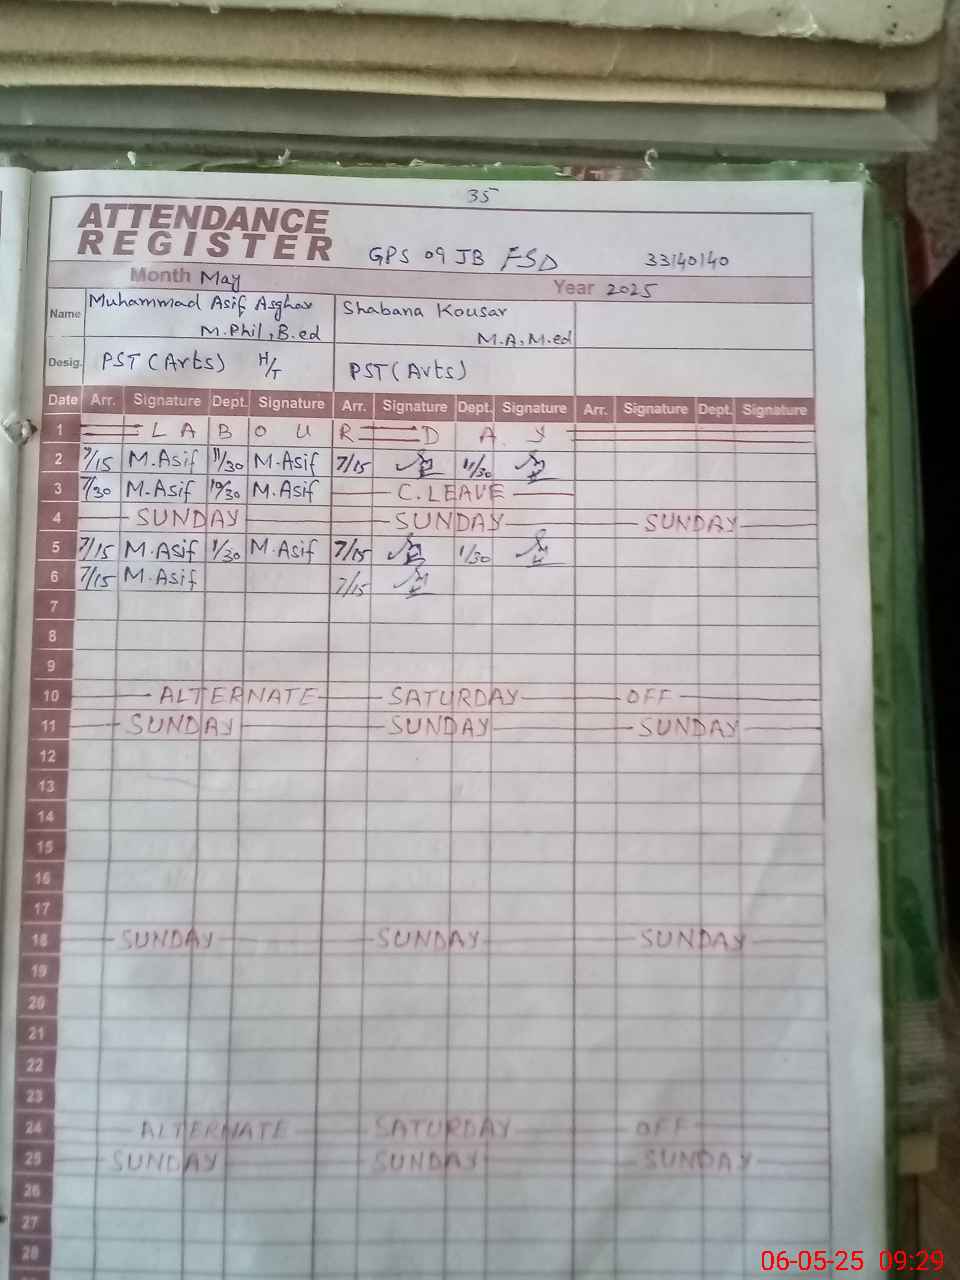 35
ATTENDANCE
REGISTER
GPS 09 JB FSD 33140140
Month May Year 2025
Name Muhammad Asif Asghar Shabana Kousar
M.Phil, B.ed M.A, M.ed
Desig. PST (Arts) H/T PST (Arts)
Date Arr. Signature Dept. Signature Arr. Signature Dept. Signature Arr. Signature Dept. Signature
1 LABOUR DAY
2 7/15 M.Asif 11/30 M.Asif 7/15 11/30
3 7/30 M.Asif 10/30 M.Asif C.LEAVE
4 SUNDAY SUNDAY SUNDAY
5 7/15 M.Asif 1/30 M.Asif 7/15 1/30
6 7/15 M.Asif 7/15
7
8
9
10 ALTERNATE SATURDAY OFF
11 SUNDAY SUNDAY SUNDAY
12
13
14
15
16
17
18 SUNDAY SUNDAY SUNDAY
19
20
21
22
23
24 ALTERNATE SATURDAY OFF
25 SUNDAY SUNDAY SUNDAY
26
27
28
06-05-25 09:29